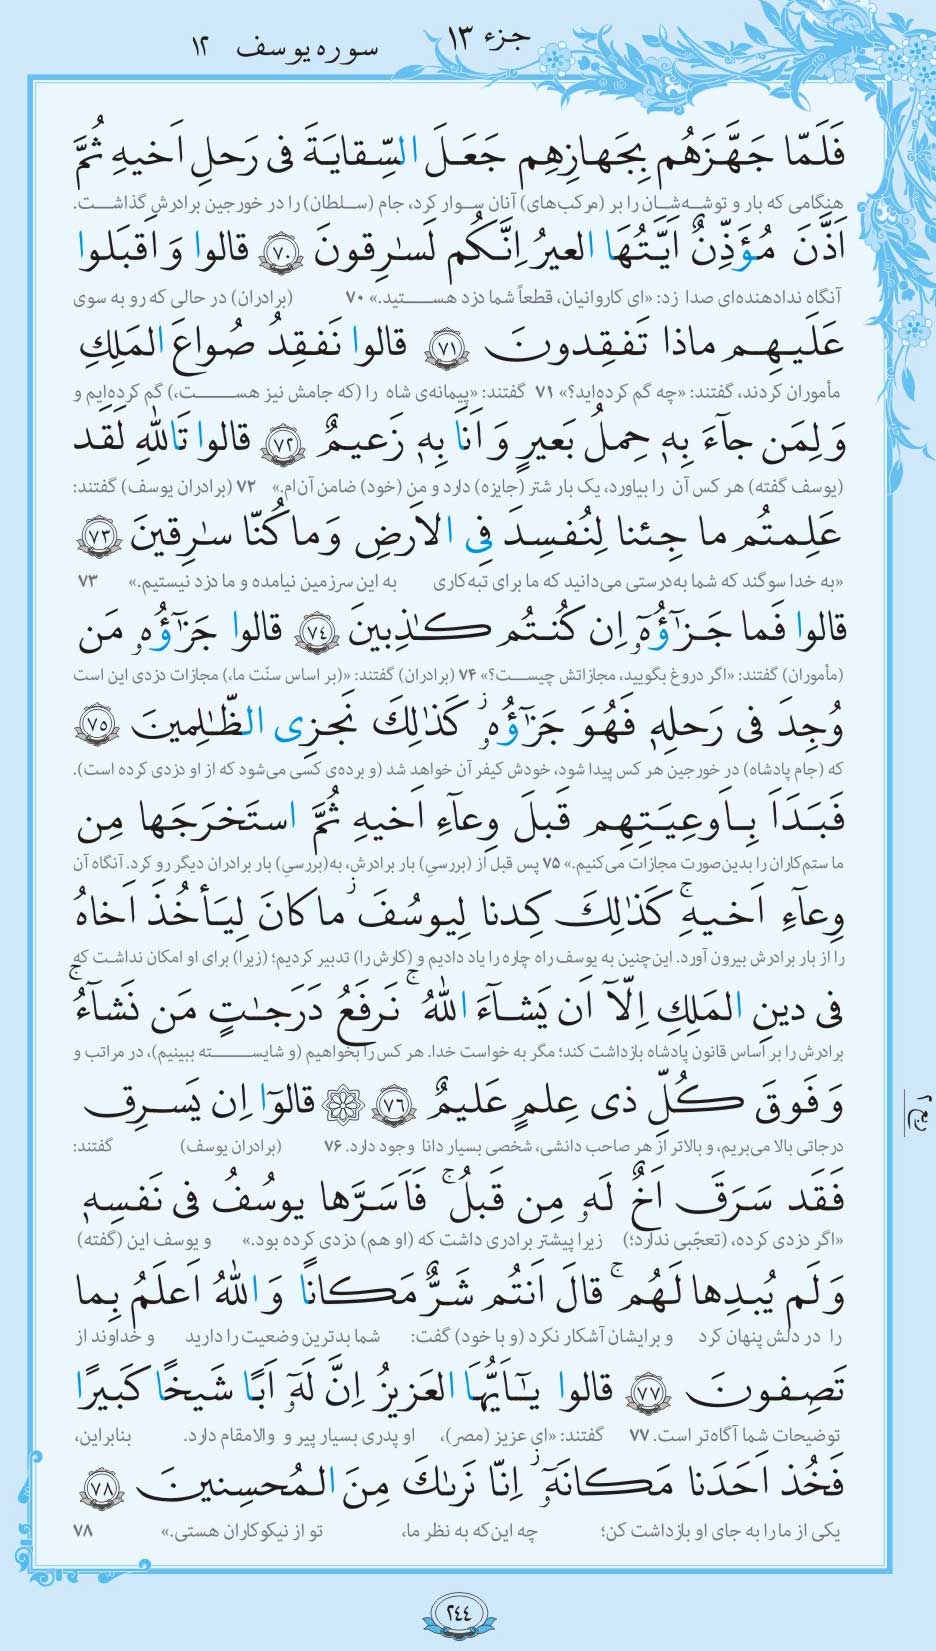 جزء ۱۳
سوره یوسف ۱۲
فَلَمّا جَهَّزَهُم بِجَهازِهِم جَعَلَ السِّقايَةَ فى رَحلِ اَخيهِ ثُمَّ
هنگامی که بار و توشه‌شان را بر (مرکب‌های) آنان سوار کرد، جام (سلطان) را در خورجین برادرش گذاشت.
اَذَّنَ مُؤَذِّنٌ اَيَّتُهَا العيرُ اِنَّكُم لَسٰرِقونَ ﴿٧٠﴾ قالوا وَ اَقبَلوا
آنگاه ندادهنده‌ای صدا زد: «ای کاروانیان، قطعاً شما دزد هستید.» ۷۰ (برادران) در حالی که رو به سوی
عَلَيهِم ماذا تَفقِدونَ ﴿٧١﴾ قالوا نَفقِدُ صُواعَ المَلِكِ
مأموران کردند، گفتند: «چه گم کرده‌اید؟» ۷۱ گفتند: «پیمانه‌ی شاه را (که جامش نیز هست،) گم کرده‌ایم و
وَ لِمَن جآءَ بِهٖ حِملُ بَعيرٍ وَ اَنَا بِهٖ زَعيمٌ ﴿٧٢﴾ قالوا تَاللّٰهِ لَقَد
(یوسف گفته) هر کس آن را بیاورد، یک بار شتر (جایزه) دارد و من (خود) ضامن آن‌ام.» ۷۲ (برادران یوسف) گفتند:
عَلِمتُم ما جِئنا لِنُفسِدَ فِى الاَرضِ وَ ما كُنّا سٰرِقينَ ﴿٧٣﴾
«به خدا سوگند که شما به‌درستی می‌دانید که ما برای تبه‌کاری به این سرزمین نیامده و ما دزد نیستیم.» ۷۳
قالوا فَما جَزٰٓؤُهٗٓ اِن كُنتُم كٰذِبينَ ﴿٧٤﴾ قالوا جَزٰٓؤُهٗ مَن
(مأموران) گفتند: «اگر دروغ بگویید، مجازاتش چیست؟» ۷۴ (برادران) گفتند: «(بر اساس سنّت ما،) مجازات دزدی این است
وُجِدَ فى رَحلِهٖ فَهُوَ جَزٰٓؤُهٗ ۚ كَذٰلِكَ نَجزِى الظّٰلِمينَ ﴿٧٥﴾
که (جام پادشاه) در خورجین هر کس پیدا شود، خودش کیفر آن خواهد شد (و برده‌ی کسی می‌شود که از او دزدی کرده است).
فَبَدَاَ بِاَوعِيَتِهِم قَبلَ وِعآءِ اَخيهِ ثُمَّ استَخرَجَها مِن
ما ستم‌کاران را بدین‌صورت مجازات می‌کنیم.» ۷۵ پس قبل از (بررسیِ) بار برادرش، به(بررسیِ) بار برادران دیگر رو کرد. آنگاه آن
وِعآءِ اَخيهِ ۚ كَذٰلِكَ كِدنا لِيوسُفَ ۖ ما كانَ لِيَأخُذَ اَخاهُ
را از بار برادرش بیرون آورد. این‌چنین به یوسف راه چاره را یاد دادیم و (کارش را) تدبیر کردیم؛ (زیرا) برای او امکان نداشت که
فى دينِ المَلِكِ اِلّآ اَن يَشآءَ اللّٰهُ ۚ نَرفَعُ دَرَجٰتٍ مَن نَشآءُ ۚ
برادرش را بر اساس قانون پادشاه بازداشت کند؛ مگر به خواست خدا. هر کس را بخواهیم (و شایسته ببینیم)، در مراتب و
وَ فَوقَ كُلِّ ذى عِلمٍ عَليمٌ ﴿٧٦﴾ ۞ قالوٓا اِن يَسرِق
درجاتی بالا می‌بریم، و بالاتر از هر صاحب دانشی، شخصی بسیار دانا وجود دارد. ۷۶ (برادران یوسف) گفتند:
فَقَد سَرَقَ اَخٌ لَهٗ مِن قَبلُ ۚ فَاَسَرَّها يوسُفُ فى نَفسِهٖ
«اگر دزدی کرده، (تعجّبی ندارد؛) زیرا پیشتر برادری داشت که (او هم) دزدی کرده بود.» و یوسف این (گفته)
وَ لَم يُبدِها لَهُم ۚ قالَ اَنتُم شَرٌّ مَكانًا وَ اللّٰهُ اَعلَمُ بِما
را در دلش پنهان کرد و برایشان آشکار نکرد (و با خود) گفت: شما بدترین وضعیت را دارید و خداوند از
تَصِفونَ ﴿٧٧﴾ قالوا يٰٓاَيُّهَا العَزيزُ اِنَّ لَهٗٓ اَبًا شَيخًا كَبيرًا
توضیحات شما آگاه‌تر است. ۷۷ گفتند: «ای عزیز (مصر)، او پدری بسیار پیر و والامقام دارد. بنابراین،
فَخُذ اَحَدَنا مَكانَهٗٓ ۖ اِنّا نَرىٰكَ مِنَ المُحسِنينَ ﴿٧٨﴾
یکی از ما را به جای او بازداشت کن؛ چه این‌که به نظر ما، تو از نیکوکاران هستی.» ۷۸
۲۴۴